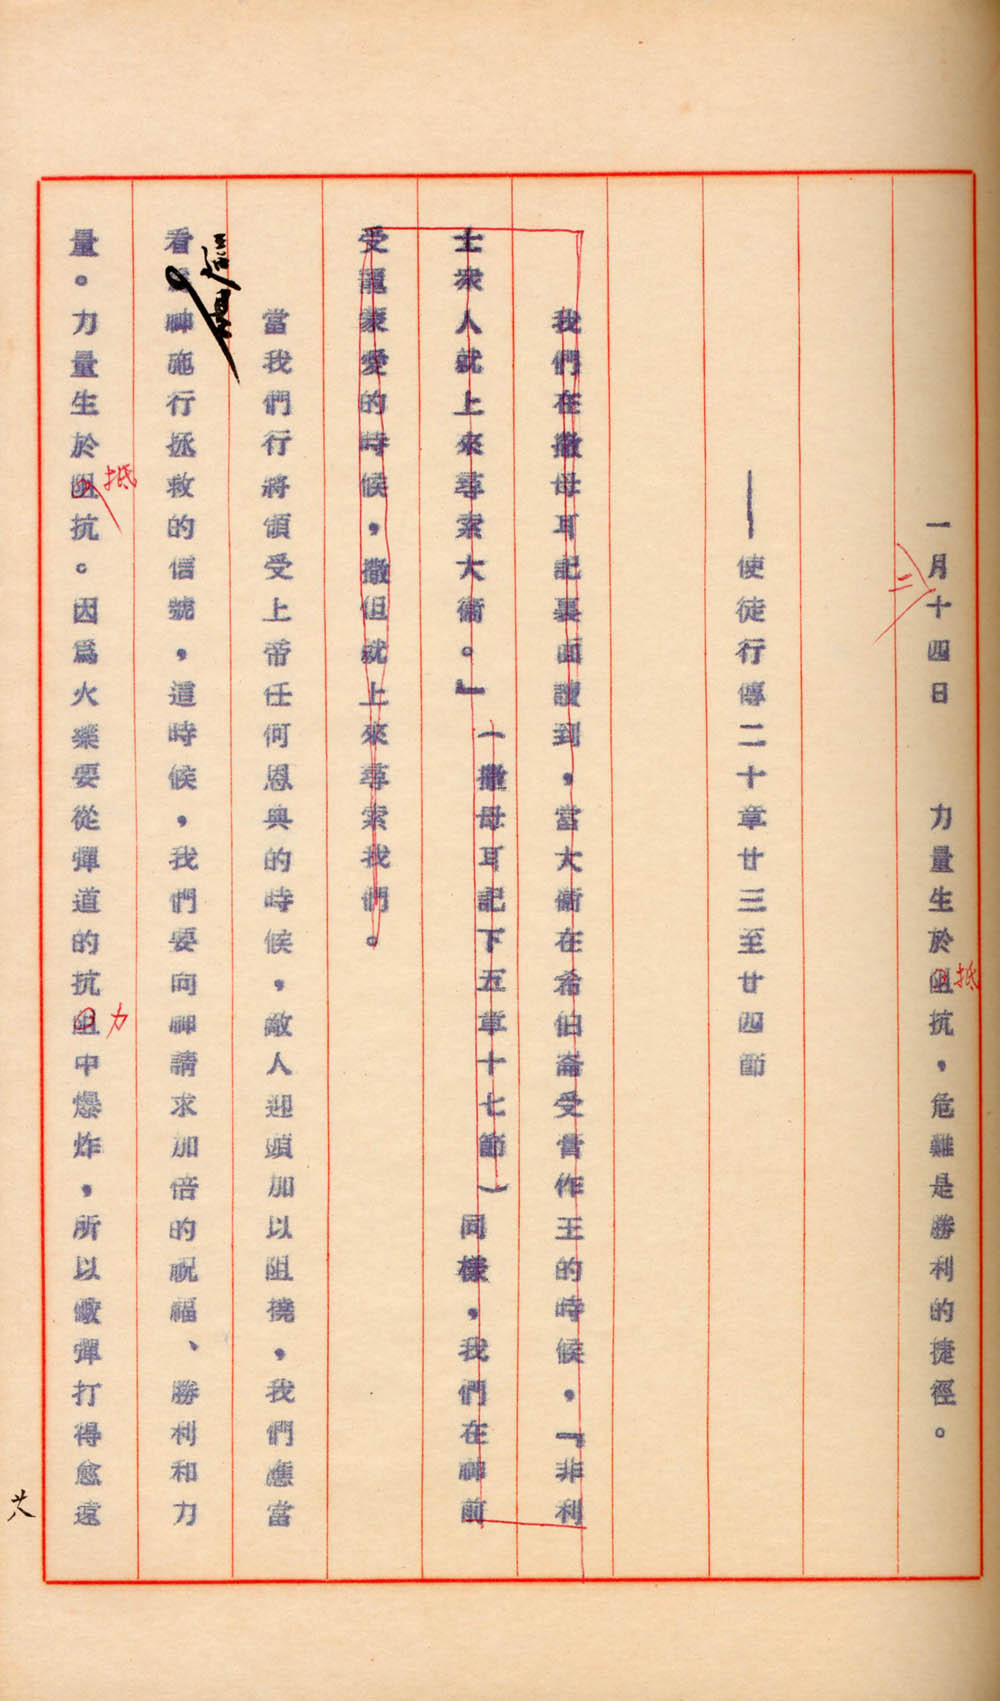 一月十四日　力量生於阻抗，危難是勝利的捷徑。
二
抵
——使徒行傳二十章廿三至廿四節
我們在撒母耳記裏面讀到，當大衞在希伯崙受膏作王的時候，『非利
士衆人就上來尋索大衞。』（撒母耳記下五章十七節）同樣，我們在神前
受寵蒙愛的時候，撒但就上來尋索我們。
當我們行將領受上帝任何恩典的時候，敵人迎頭加以阻撓，我們應當
看神施行拯救的信號，這時候，我們要向神請求加倍的祝福、勝利和力
量。力量生於阻抗。因爲火藥要從彈道的抗阻中爆炸，所以礮彈打得愈遠
抵
力
廿八